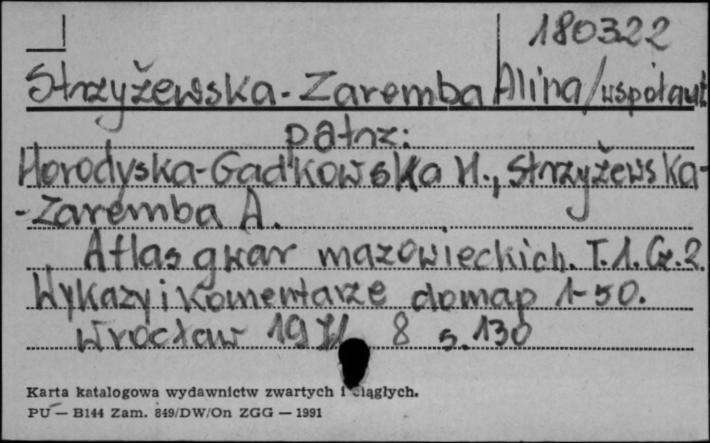 180322
Strzyżewska-Zaremba Alina/współaut
patrz:
Horodyska-Gadkowska H., Strzyżewska-
-Zaremba A.
Atlas gwar mazowieckich. T.1. Cz.2.
Wykazy i komentarze do map 1-50.
Wrocław 1971 8 s.130
Karta katalogowa wydawnictw zwartych i ciągłych.
PU — B144 Zam. 849/DW/On ZGG — 1991